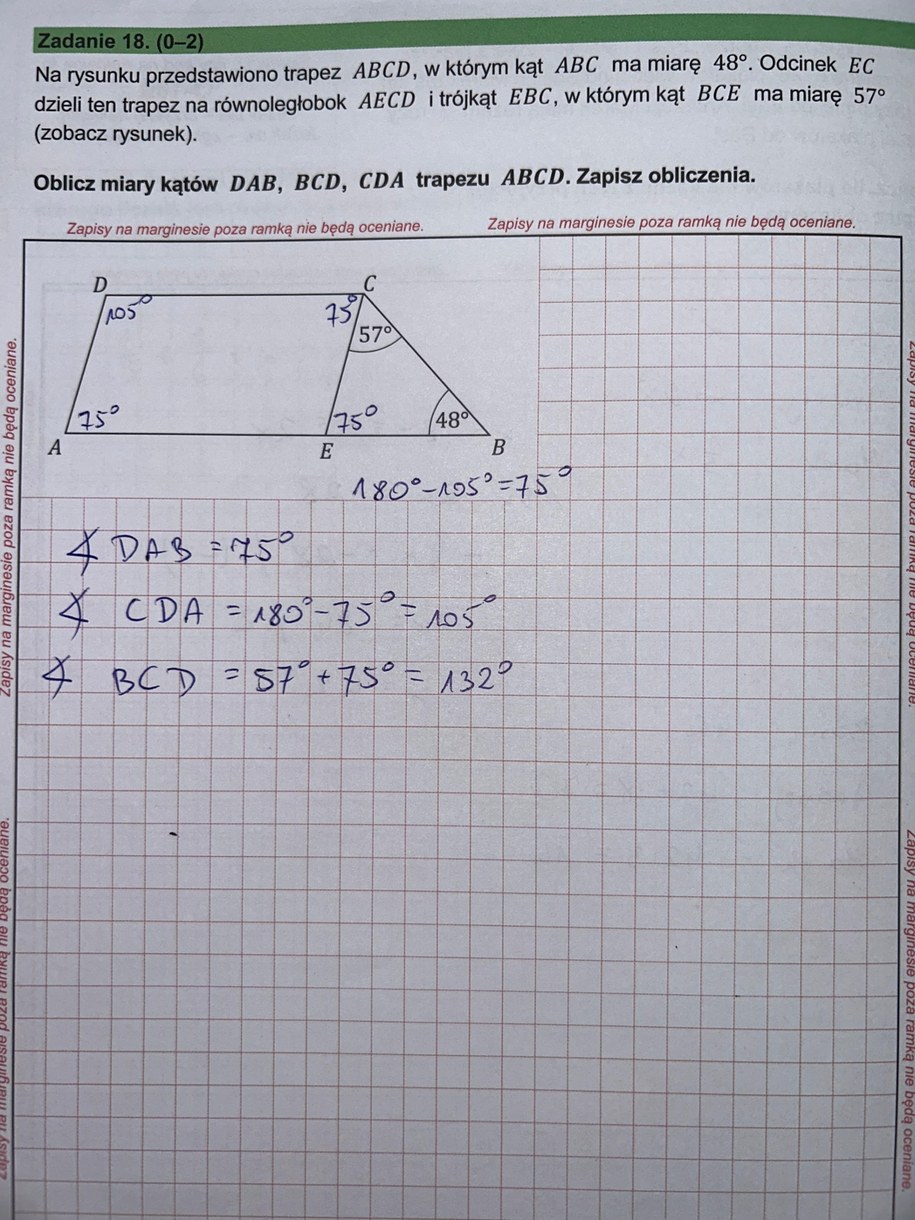 Zadanie 18. (0–2)
Na rysunku przedstawiono trapez ABCD, w którym kąt ABC ma miarę 48°. Odcinek EC
dzieli ten trapez na równoległobok AECD i trójkąt EBC, w którym kąt BCE ma miarę 57°
(zobacz rysunek).
Oblicz miary kątów DAB, BCD, CDA trapezu ABCD. Zapisz obliczenia.
Zapisy na marginesie poza ramką nie będą oceniane.
Zapisy na marginesie poza ramką nie będą oceniane.
D
C
105°
75°
57°
75°
75°
48°
A
E
B
180°-105°=75°
∢ DAB = 75°
∢ CDA = 180°-75° = 105°
∢ BCD = 57° + 75° = 132°
Zapisy na marginesie poza ramką nie będą oceniane.
Zapisy na marginesie poza ramką nie będą oceniane.
Zapisy na marginesie poza ramką nie będą oceniane.
Zapisy na marginesie poza ramką nie będą oceniane.